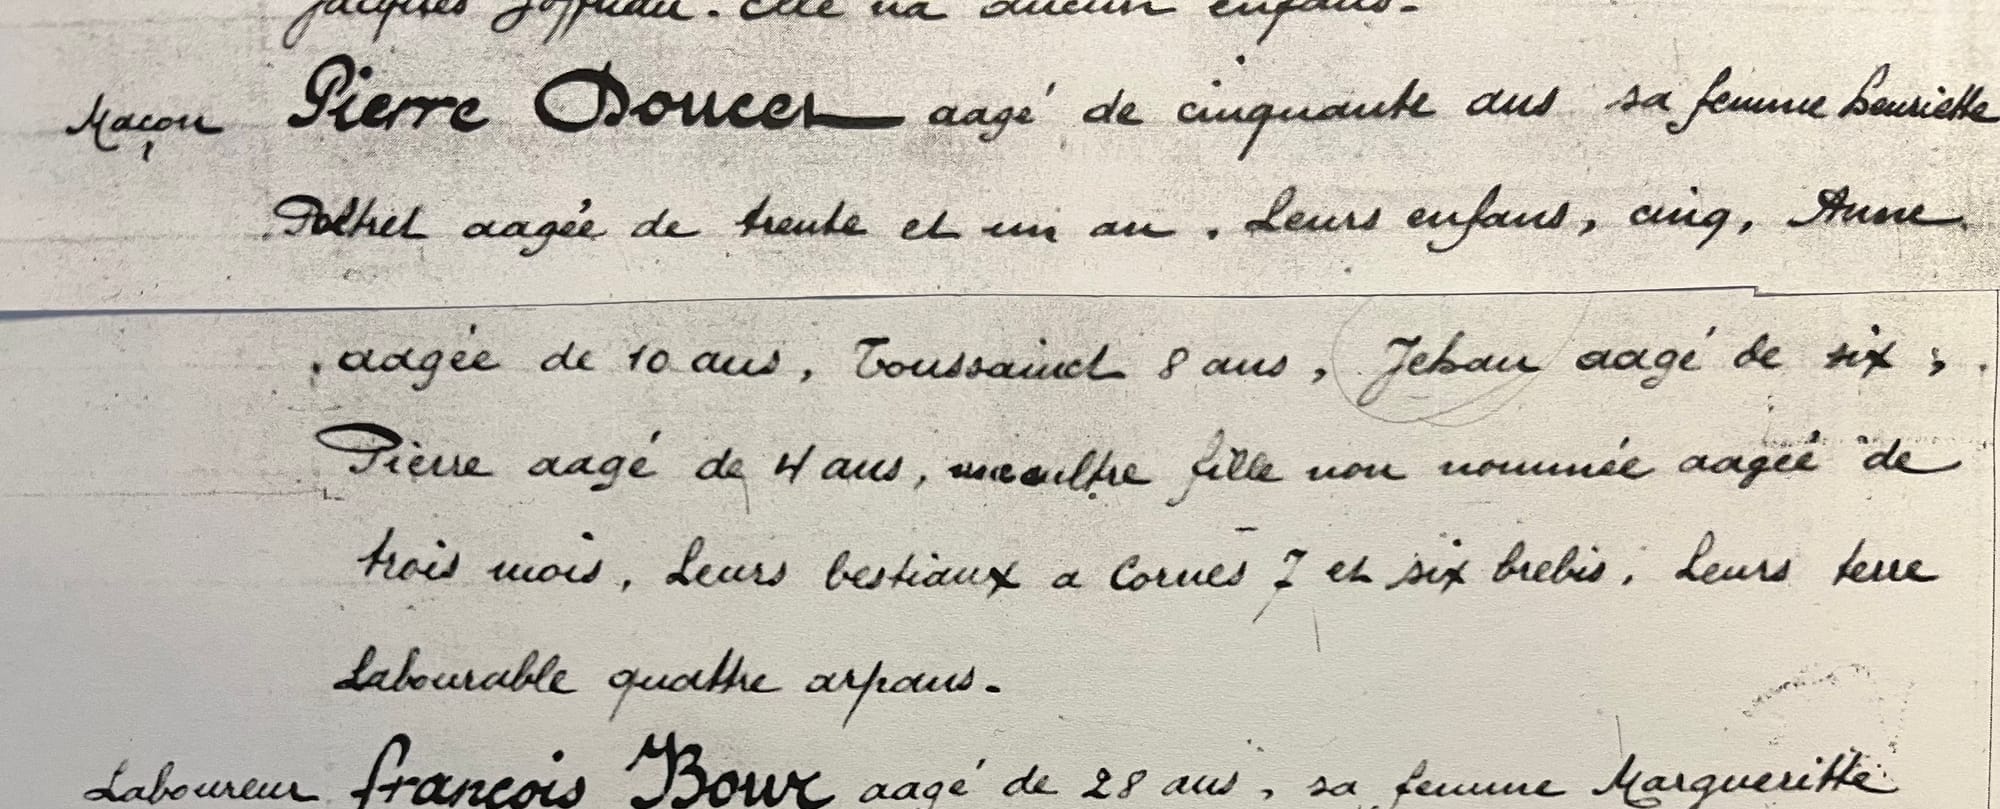 Jacques Joffriau. Elle n'a aucun enfans.
Maçon Pierre Doucet aagé de cinquante ans sa femme henriette
Peltret aagée de trente et un an. Leurs enfans, cinq, Anne.
aagée de 10 ans, Toussainct 8 ans, Jehan aagé de six;
Pierre aagé de 4 ans, une aultre fille non nommée aagée de
trois mois, Leurs bestiaux a Cornes 7 et six brebis, Leurs terre
Labourable quattre arpans.
Laboureur françois Bourc aagé de 28 ans, sa femme Margueritte